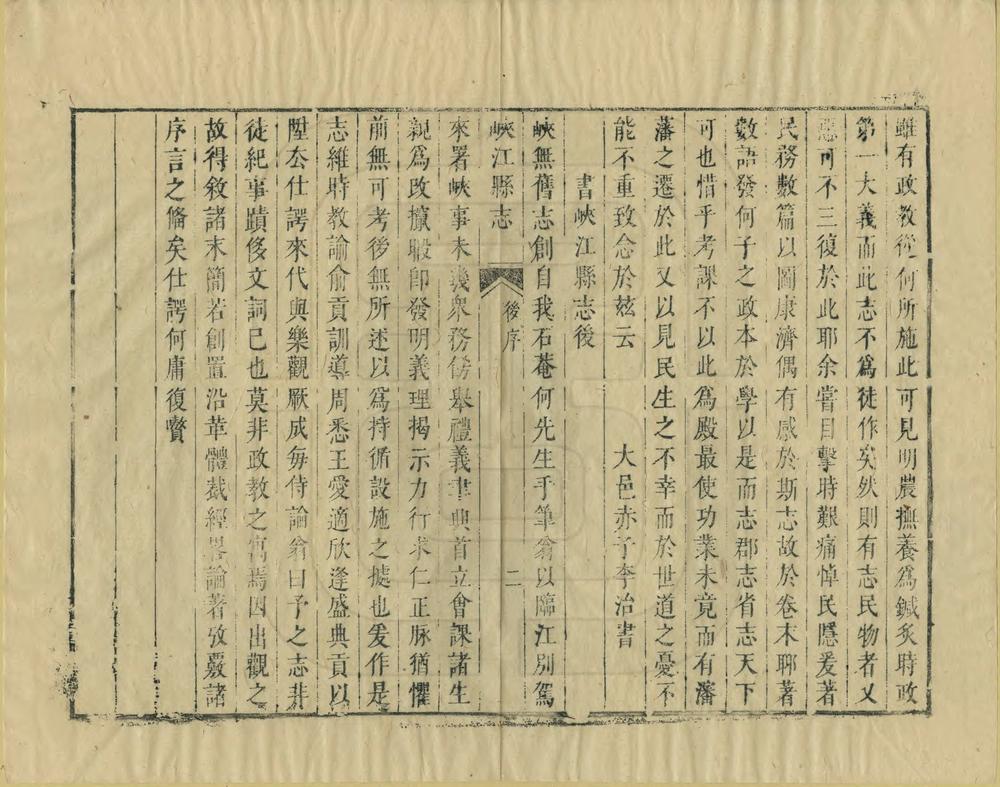 雖有政教從何所施此可見明農撫養為鍼炙時政
第一大義而此志不為徒作矣然則有志民物者又
惡可不三復於此耶余嘗目擊時艱痛悼民隱爰著
民務數篇以圖康濟偶有感於斯志故於卷末聊著
數語發何子之政本於學以是而志郡志省志天下
可也惜乎考課不以此為殿最使功業未竟而有瀋
藩之遷於此又以見民生之不幸而於世道之憂不
能不重致念於玆云
大邑赤子李治書
書峽江縣志後
峽無舊志創自我石菴何先生手筆翁以臨江別駕
峽江縣志
後序
二
來署峽事未幾眾務俻舉禮義聿典首立會課諸生
親為改攛毆卽發明義理揭示力行求仁正脉猶懼
前無可考後無所述以為持循設施之據也爰作是
志維時教諭俞貢訓導周悉王愛適欣逢盛典貢以
陞厺仕諤來代與樂觀厥成每侍論翁曰予之志非
徒紀事蹟侈文詞已也莫非政教之寓焉因出觀之
故得敘諸末簡若創置沿革體裁經畧論著攷覈諸
序言之俻矣仕諤何庸復贅